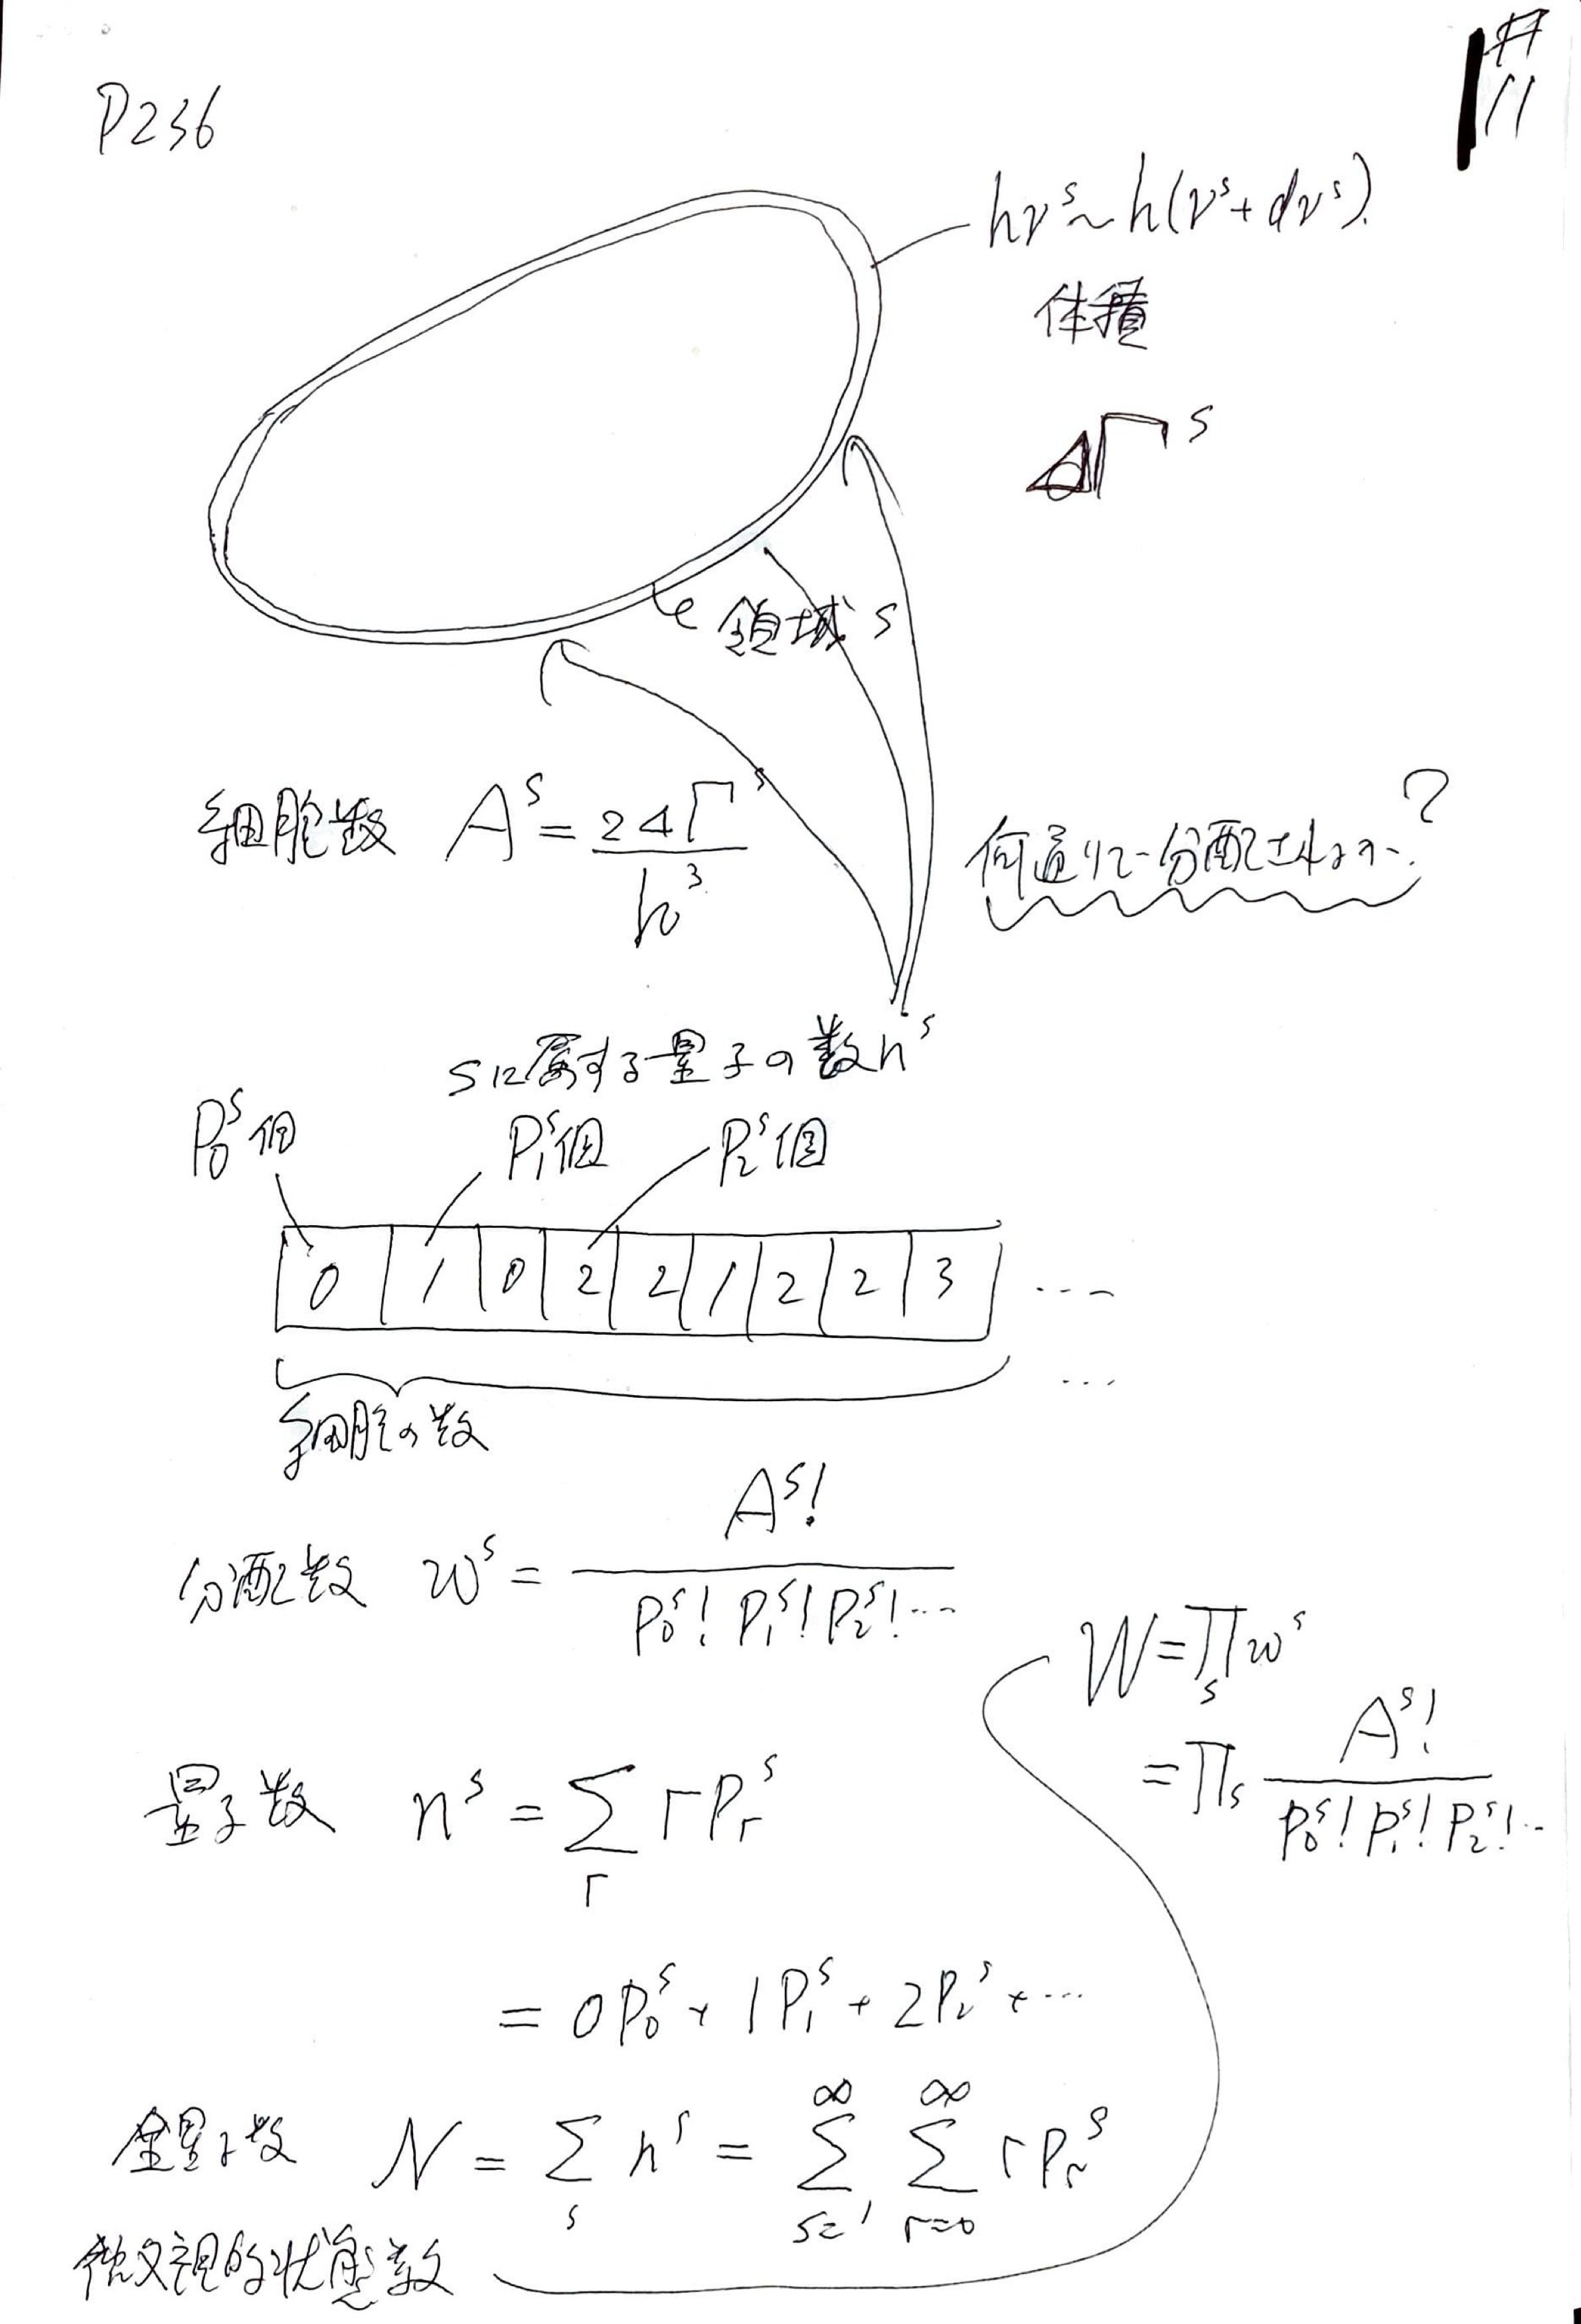 #11
P236
hν^s ~ h(ν^s + dν^s)
体積
ΔΓ^s
領域 s
細胞数 A^s = 2ΔΓ^s / h^3
何通りで分配されるか?
sに属する量子の数n^s
P_0^s個 P_1^s個 P_2^s個
0 1 0 2 2 1 2 2 3 ...
...
細胞の数
分配数 w^s = A^s! / P_0^s! P_1^s! P_2^s! ...
W = ∏_s w^s
= ∏_s A^s! / P_0^s! P_1^s! P_2^s! ..
量子数 n^s = Σ_r r P_r^s
= 0P_0^s + 1P_1^s + 2P_2^s + ...
全量子数 N = Σ_s n^s = Σ_{s=1}^∞ Σ_{r=0}^∞ r P_r^s
微視的状態数